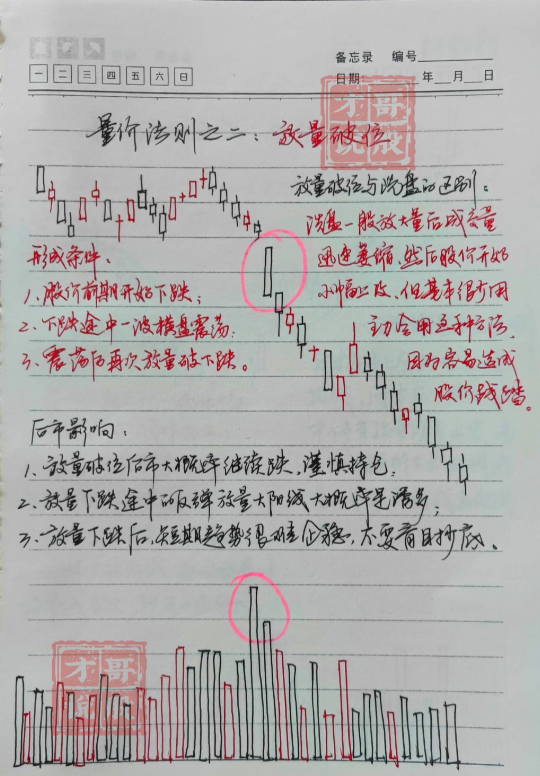 备忘录 编号
一 二 三 四 五 六 日
日期 年 月 日
才哥
说股
量价法则之二：放量破位
放量破位与洗盘的区别：
洗盘一般放大量后成交量
迅速萎缩，然后股价开始
小幅上攻，但基本很少用
主力会用这种方法，
因为容易造成
股价践踏。
形成条件：
1、股价前期开始下跌；
2、下跌途中一波横盘震荡；
3、震荡后再次放量破下跌。
后市影响：
1、放量破位后市大概率继续跌，谨慎持仓；
2、放量下跌途中的反弹放量大阳线大概率是诱多；
3、放量下跌后，短期趋势很难企稳，不要盲目抄底。
才哥
说股